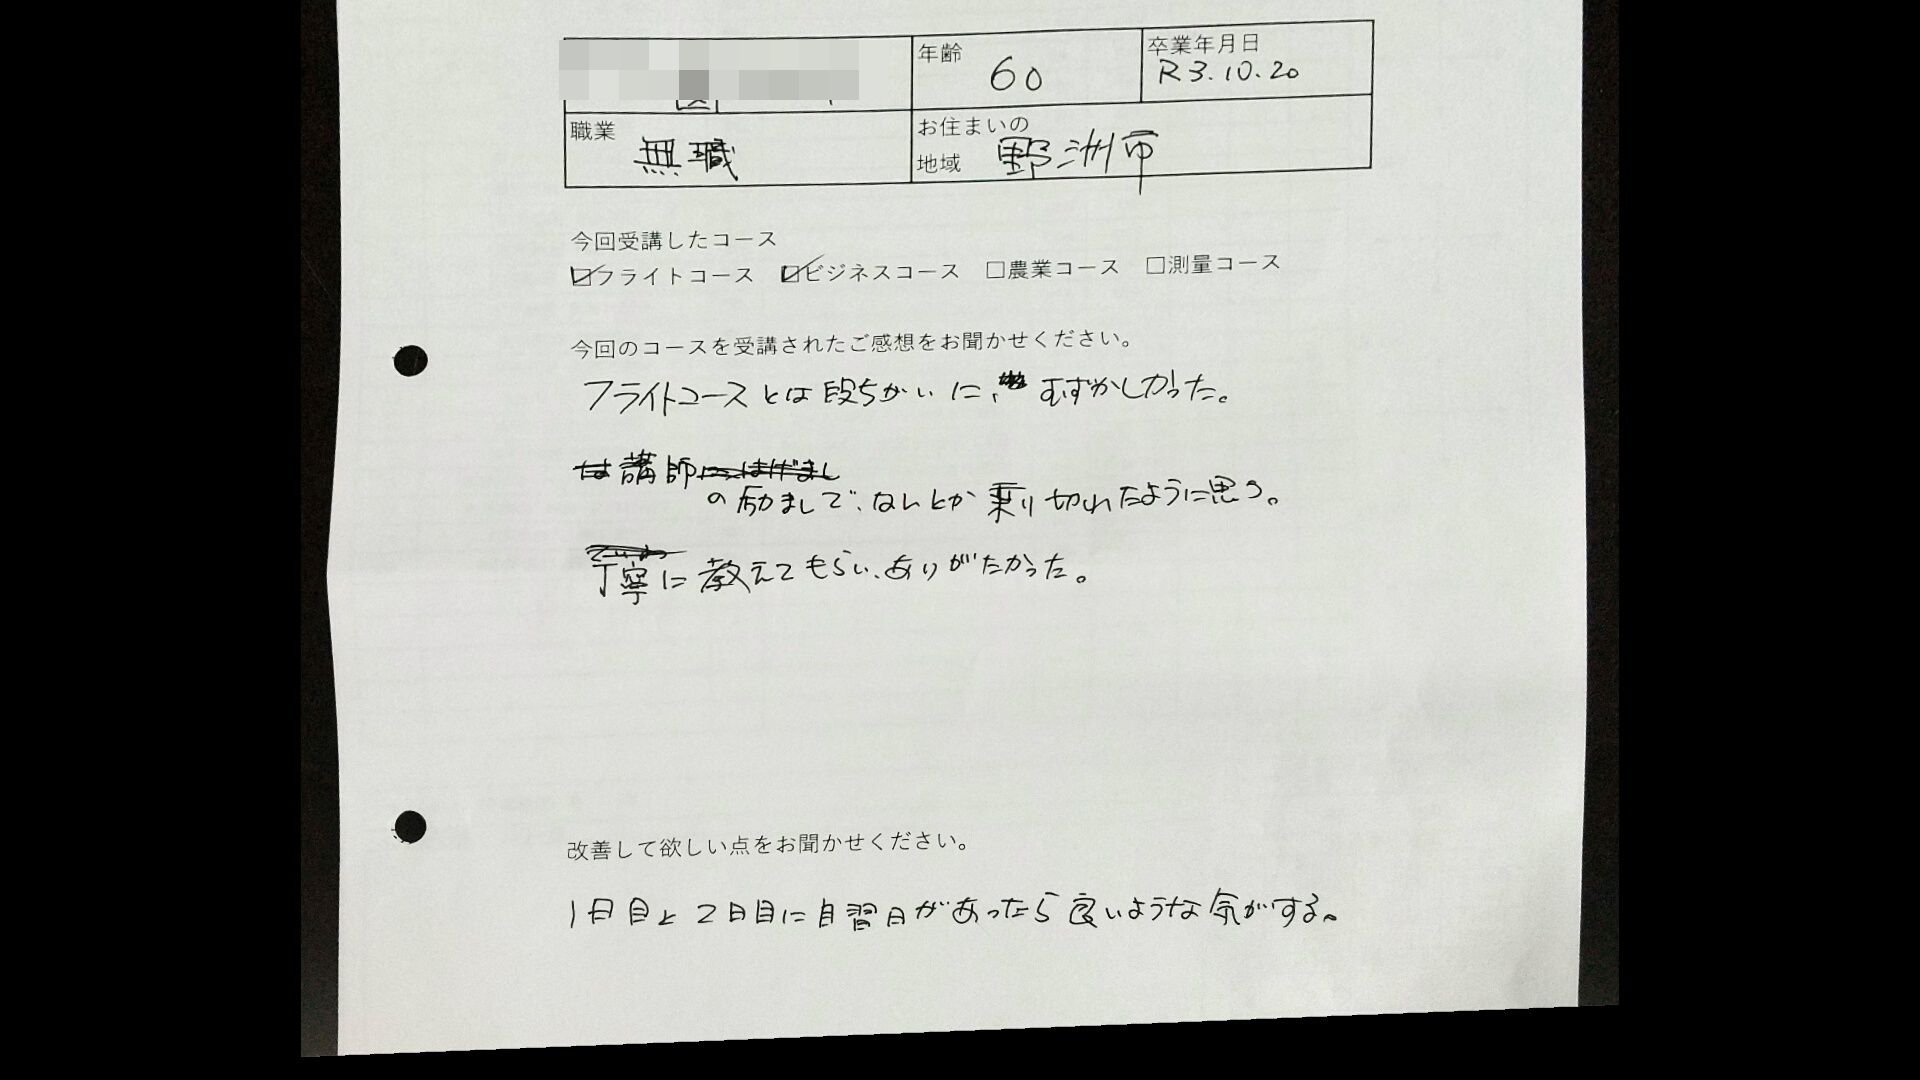 年齢 60
卒業年月日
R3.10.20
職業 無職
お住まいの
地域 野洲市
今回受講したコース
☑フライトコース ☑ビジネスコース □農業コース □測量コース
今回のコースを受講されたご感想をお聞かせください。
フライトコースとは段ちがいに、むずかしかった。
講師
の励ましで、なんとか乗り切れたように思う。
丁寧に教えてもらい、ありがたかった。
改善して欲しい点をお聞かせください。
1日目と2日目に自習日があったら良いような気がする。